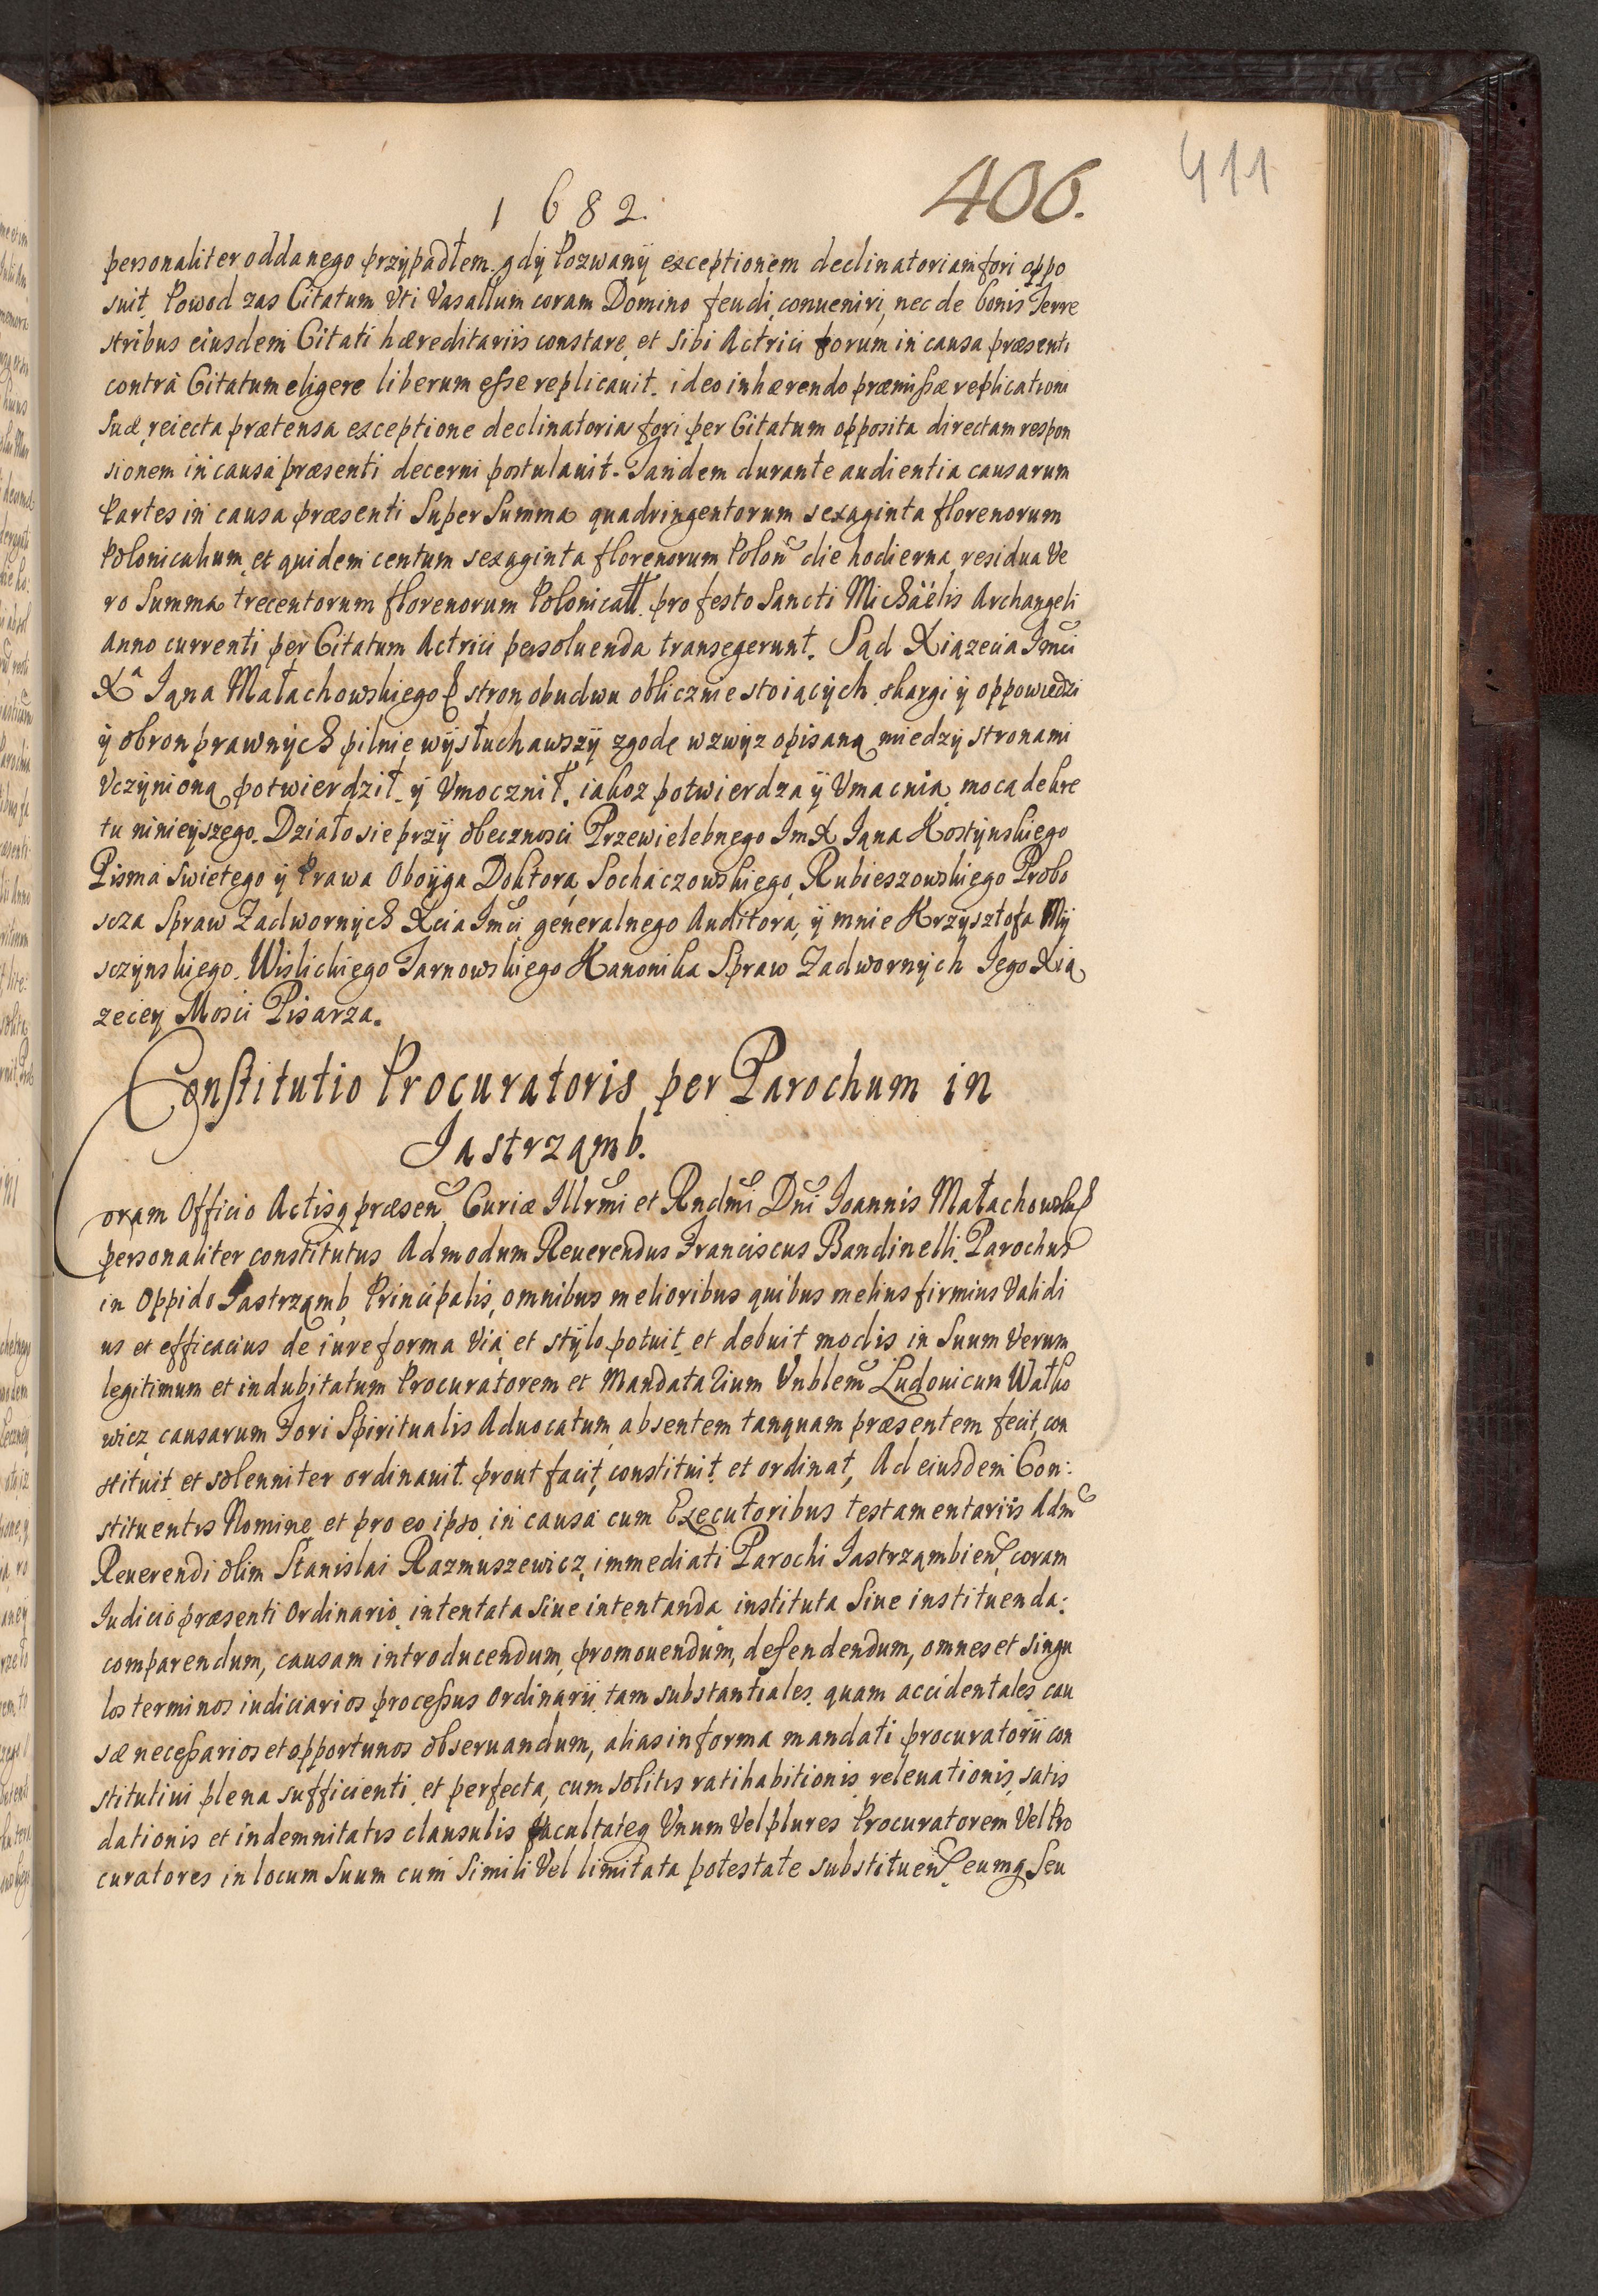 1682.
406.
411
personaliter oddanego przÿpadłem. gdÿ Pozwanÿ exceptionem declinatoriam fori oppo
suit, Powod zas Citatum Vti Vasallum coram Domino feudi conueniri, nec de bonis Terre
stribus eiusdem Citati hæreditariis constare, et sibi Actrici forum in causa præsenti
contrà Citatum eligere liberum eße replicauit. ideo inhærendo præmißæ replicationi
suæ, reiecta prætensa exceptione declinatoria fori per Citatum opposita directam respon
sionem in causa præsenti decerni postulauit. Tandem durante audientia causarum
Partes in causa præsenti Super Summa quadringentorum sexaginta florenorum
Polonicalium, et quidem centum sexaginta florenorum Polon die hodierna, residua Ve
ro Summa trecentorum florenorum Polonicall. pro festo Sancti Michaëlis Archangeli
anno currenti per Citatum Actrici persoluenda transegerunt. Sąd Xiązecia Jmci
Xa Jana Małachowskiego stron obudwu oblicznie stoiących, skargi ÿ oppowiedzi
ÿ obron prawnÿch pilnie wÿsłuchawszÿ zgodę wzwÿz opisaną miedzÿ stronami
Vczÿnioną potwierdził ÿ Vmocznił, iakoz potwierdza ÿ Vmacnia, moca dekre
tu ninieÿszego. Działo sie przÿ obecznosci Przewielebnego JmX Jana Kostÿnskiego
Pisma Swietego ÿ Prawa Oboÿga Doktora, Sochaczowskiego, Rubieszowskiego Probo
scza Spraw Zadwornÿch Xcia Jmci generalnego Auditora, ÿ mnie Krzÿsztofa Mÿ
sczÿnskiego, Wislickiego Tarnowskiego Kanonika Spraw Zadwornÿch Jego Xią
zeceÿ Mosci Pisarza.
Constitutio Procuratoris per Parochum in
Jastrzamb.
Coram Officio Actisq præsen Curiæ Illrmi et Rndmi Dni Joannis Małachowski
personaliter constitutus Admodum Reuerendus Franciscus Bandinelli Parochus
in Oppido Jastrząmb, Principalis, omnibus melioribus quibus melius firmius Validi
us et efficacius de iure forma Via, et stÿlo potuit, et debuit modis in Suum Verum
legitimum et indubitatum Procuratorem et Mandatarium Vnblem Ludouicum Watko
wicz causarum Fori Spiritualis Aduocatum, absentem tanquam præsentem fecit, con
stituit et solenniter ordinauit, prout facit, constituit, et ordinat, Ad eiusdem Con:
stituentis Nomine, et pro eo ipso, in causa cum Executoribus testamentariis Adm
Reuerendi olim Stanislai Razmuszewicz, immediati Parochi Jastrzambien, coram
Iudicio præsenti Ordinario, intentata siue intentanda instituta siue instituenda:
comparendum, causam introducendum, promouendum, defendendum, omnes et singu
los terminos iudiciarios proceßus Ordinarii, tam substantiales, quam accidentales cau
sæ neceßarios et opportunos obseruandum, alias in forma mandati procuratorÿ con
stitutiui plena sufficienti, et perfecta, cum solitis ratihabitionis releuationis, satis
dationis et indemnitatis clausulis facultateq Vnum Vel plures Procuratorem Vel Pro
curatores in locum Suum cum simili Vel limitata potestate substituen, eumq seu